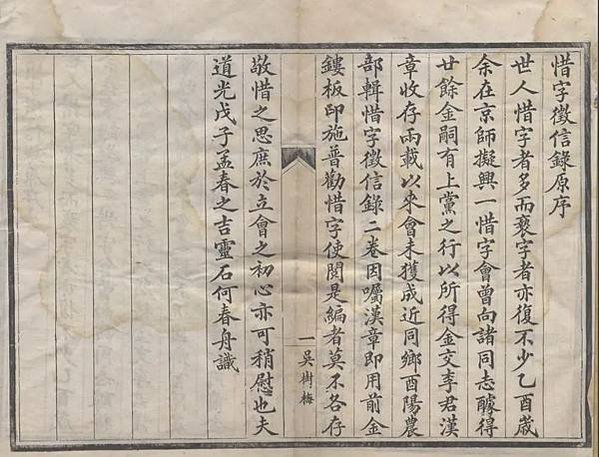 惜字徵信錄原序
世人惜字者多而褻字者亦復不少乙酉歲
余在京師擬興一惜字會曾向諸同志醵得
廿餘金嗣有上黨之行以所得金交李君漢
章收存兩載以來會未獲成近同鄉酉陽農
部輯惜字徵信錄二卷因囑漢章即用前金
鏤板印施普勸惜字使閱是編者莫不各存
一 吳樹梅
敬惜之思庶於立會之初心亦可稍慰也夫
道光戊子孟春之吉靈石何春舟識